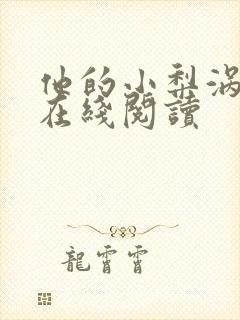 他的小梨渦
在綫閱讀
龍霄霄